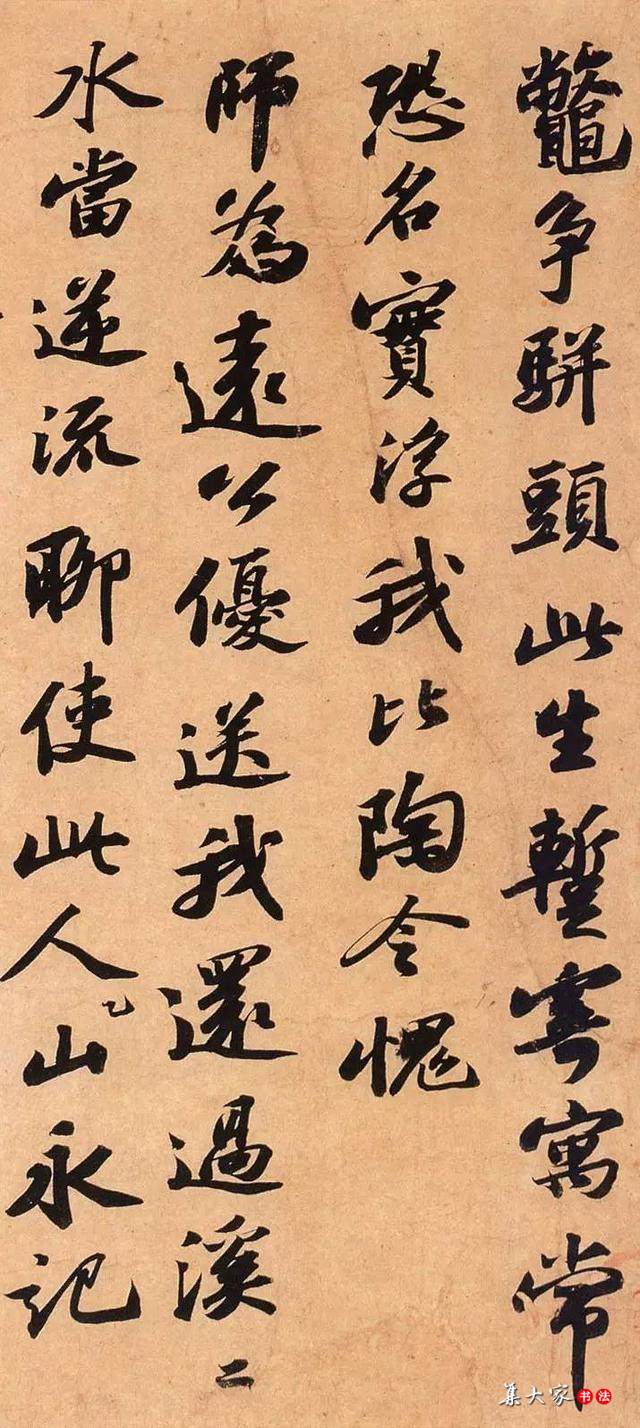 鼈争駢頭此生暫寄寓常
恐名實浮我比陶令愧
師為遠公優送我還過溪二
水當逆流聊使此人山永記
集大家书法